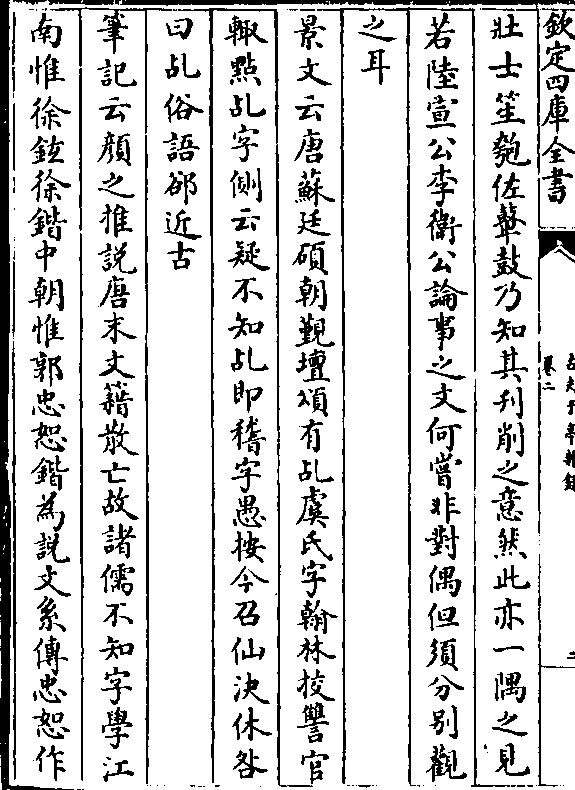 欽定四庫全書
古夫于亭雜録
卷二
二
壯士笙匏佐鼙鼓乃知其刋削之意然此亦一隅之見
若陸宣公李衛公論事之文何嘗非對偶但須分别觀
之耳
景文云唐蘇廷碩朝覲壇頌有乩虞氏字翰林挍讐官
輙㸃乩字側云疑不知乩即稽字愚按今召仙決休咎
曰乩俗語郤近古
筆記云顔之推説唐末文籍散亡故諸儒不知字學江
南惟徐鉉徐鍇中朝惟郭忠恕鍇為説文系傳忠恕作